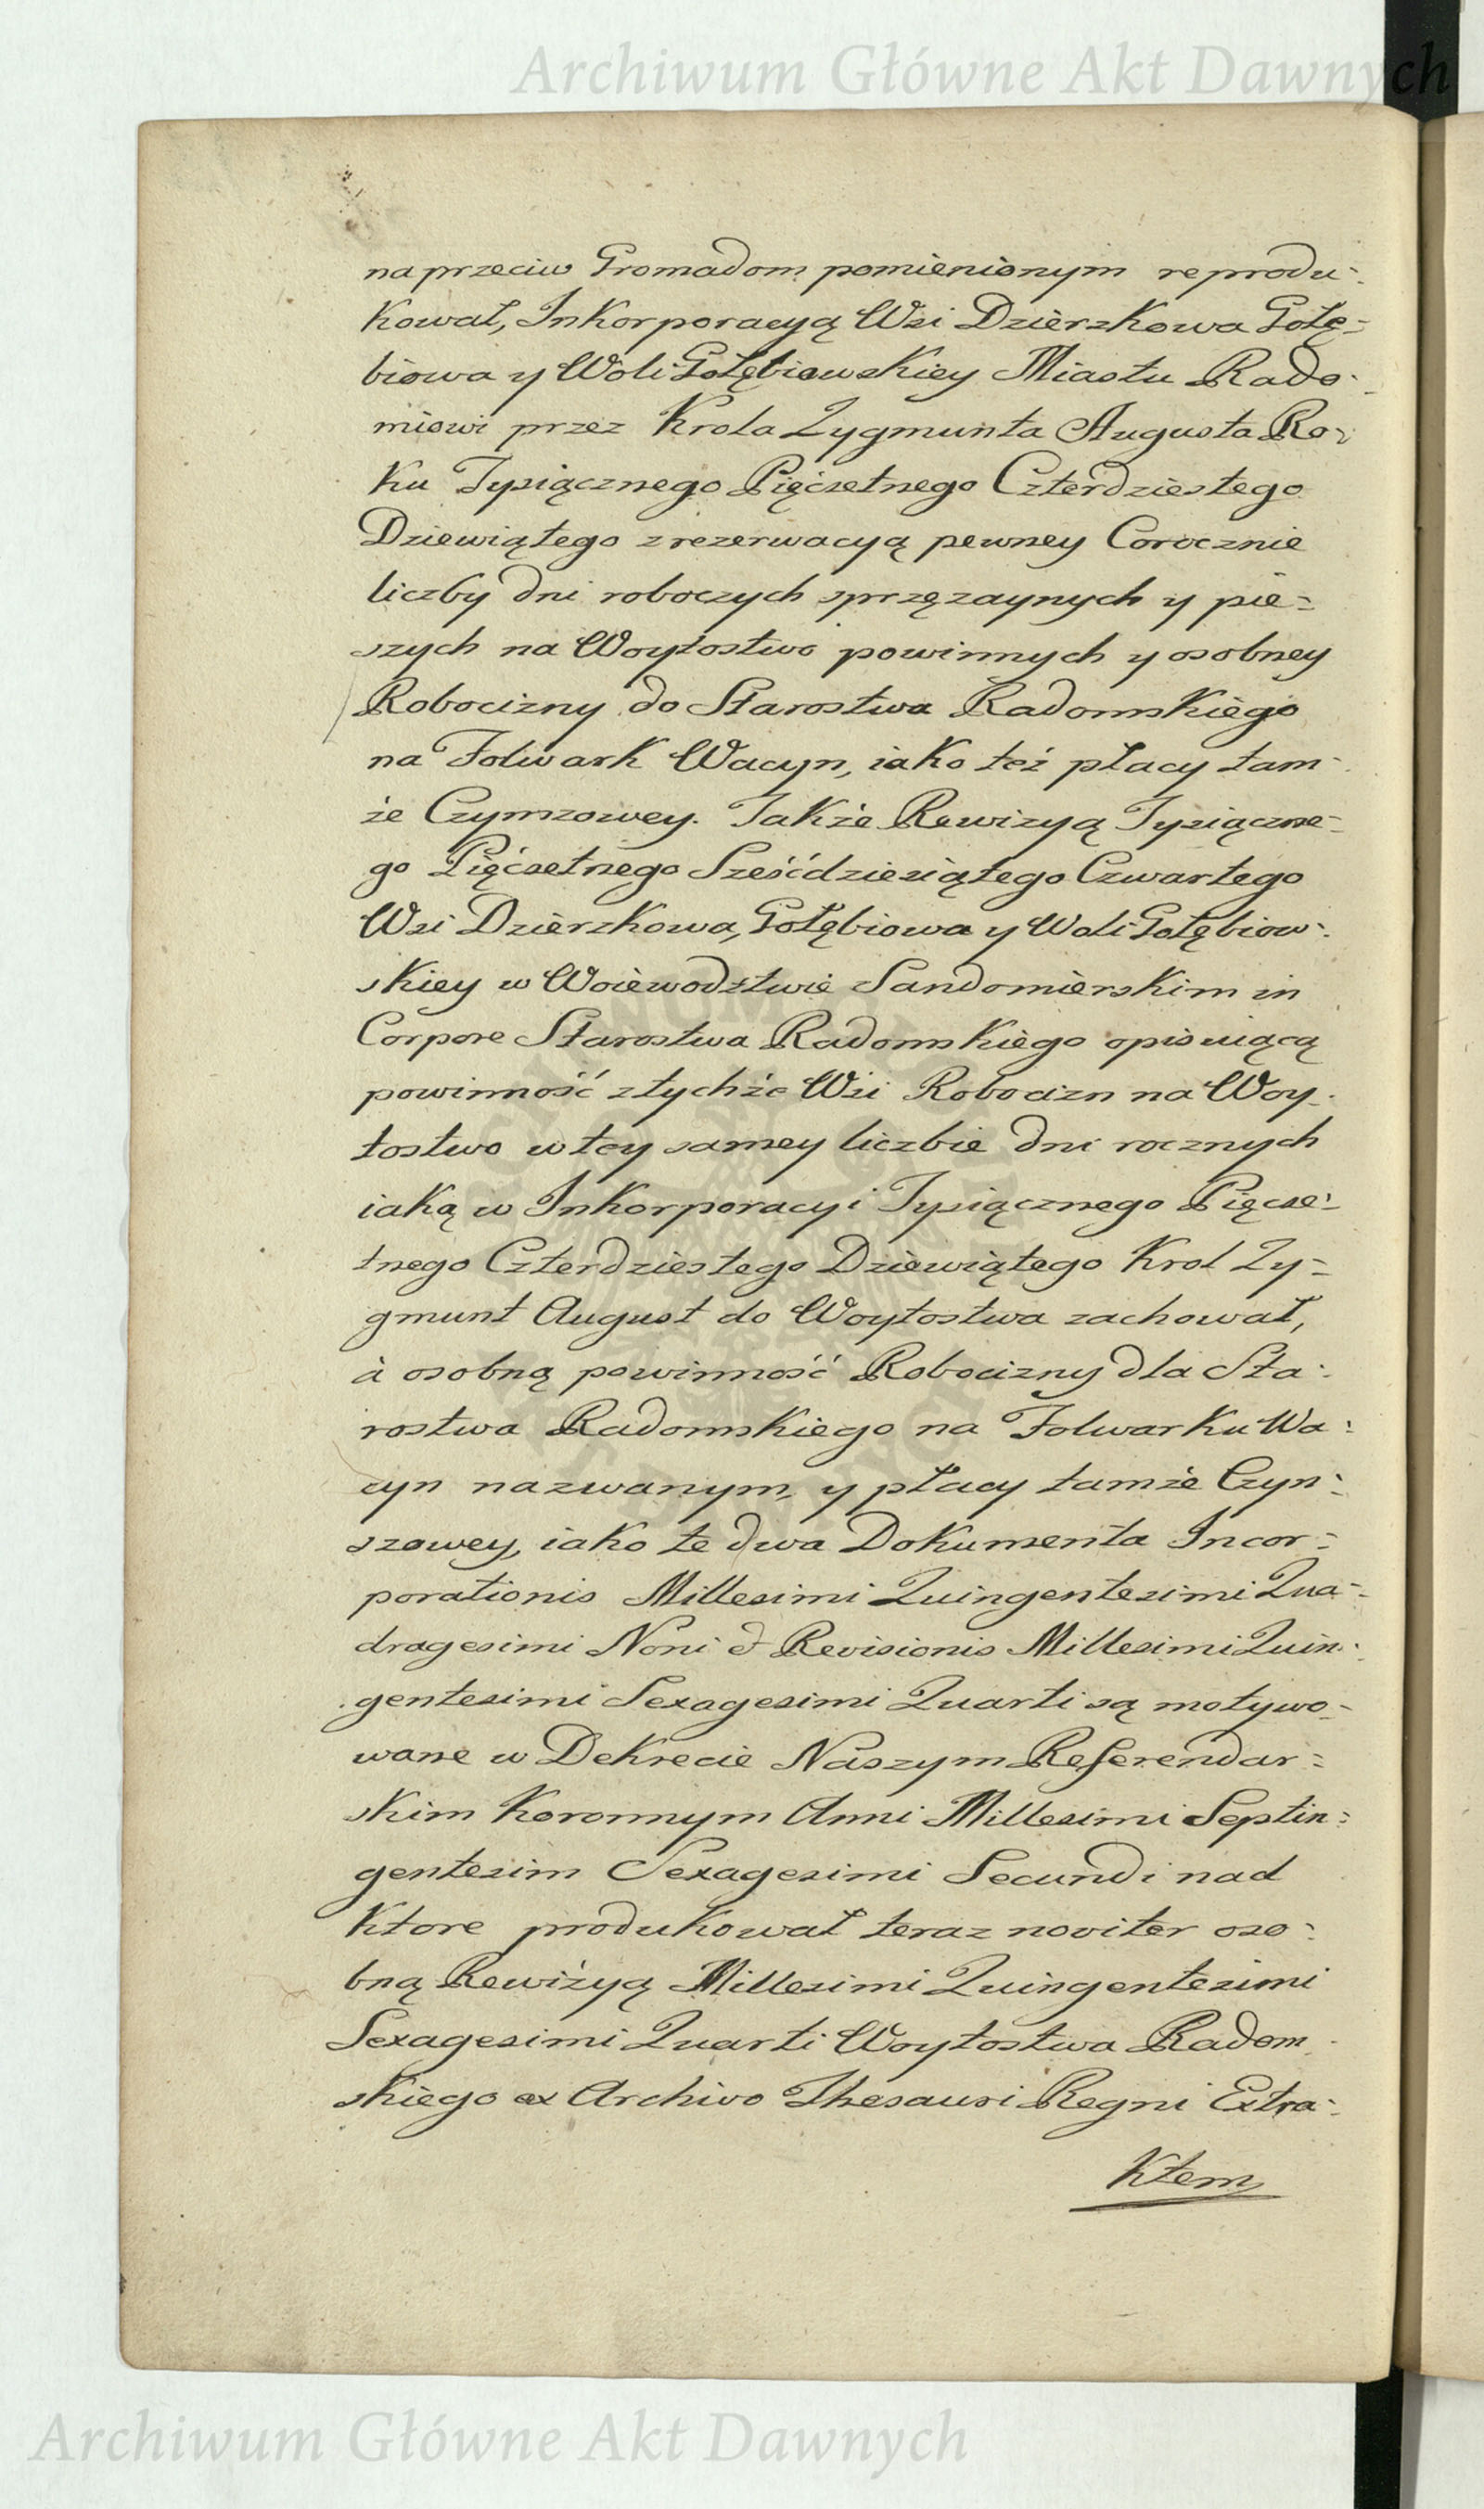 Archiwum Główne Akt Dawnych
na przeciw Gromadom pomienionym reprodu-
kował, Inkorporacyą Wsi Dzierzkowa Gołę-
biowa y Woli Gołębiowskiey Miastu Rado-
miowi przez Krola Zygmunta Augusta Ro-
ku Tysiącznego Pięćsetnego Czterdziestego
Dziewiątego z rezerwacyą pewney Corocznie
liczby dni roboczych sprzęzaynych y pie-
szych na Woytostwo powinnych y osobney
Robocizny do Starostwa Radomskiego
na Folwark Wacyn, iako też płacy tam-
że Czymzowey. Także Rewizyą Tysiączne-
go Pięćsetnego Sześćdziesiątego Czwartego
Wsi Dzierzkowa, Gołębiowa y Woli Gołębiow-
skiey w Woiewodztwie Sandomierskim in
Corpore Starostwa Radomskiego opisuiącą
powinność z tychże Wsi Robocizn na Woy-
tostwo w tey samey liczbie dni rocznych
iaką w Inkorporacyi Tysiącznego Pięcse-
tnego Czterdziestego Dziewiątego Krol Zy-
gmunt August do Woytostwa zachował,
à osobną powinność Robocizny dla Sta-
rostwa Radomskiego na Folwarku Wa-
cyn nazwanym, y płacy tamże Czyn-
szowey, iako te dwa Dokumenta Incor-
porationis Millesimi Quingentesimi Qua-
dragesimi Noni & Revisionis Millesimi Quin-
gentesimi Sexagesimi Quarti są motywo-
wane w Dekrecie Naszym Referendar-
skim Koronnym Anni Millesimi Septin-
gentesim Sexagesimi Secundi nad
ktore produkował teraz noviter oso-
bną Rewizyą Millesimi Quingentesimi
Sexagesimi Quarti Woytostwa Radom-
skiego ex Archivo Thesauri Regni Extra-
ktem
Archiwum Główne Akt Dawnych